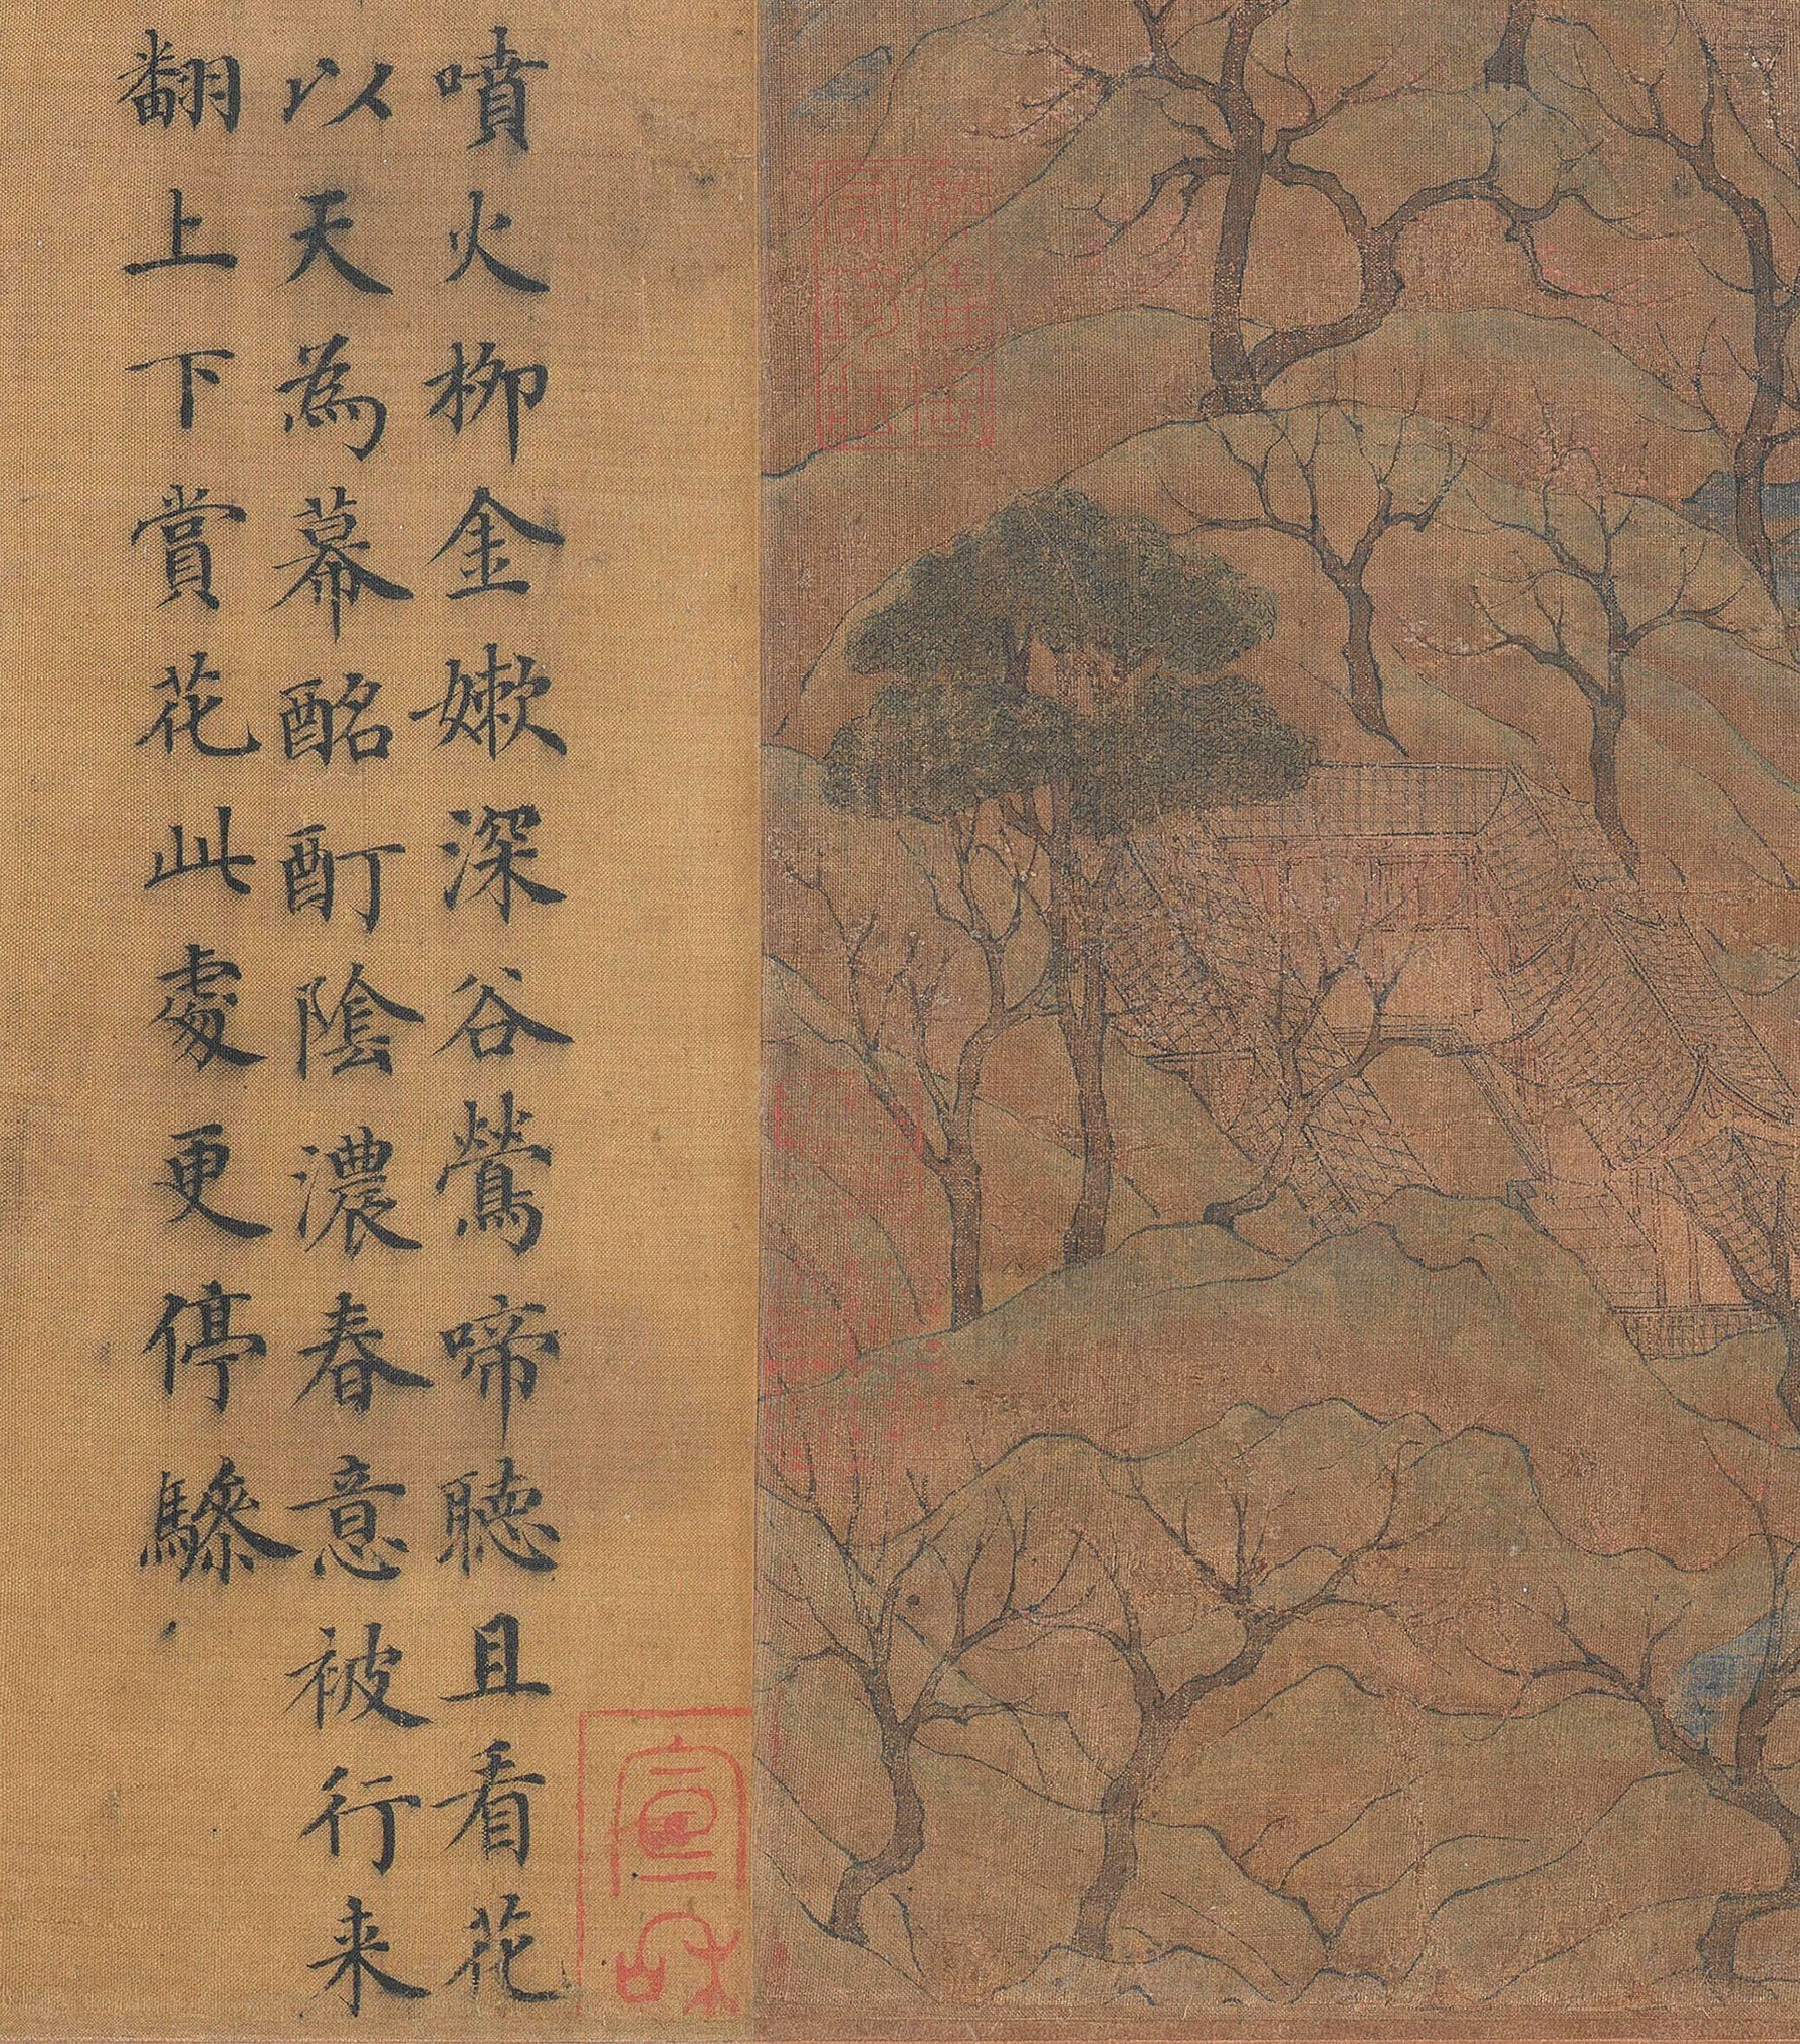 噴火柳金嫩深谷鶯啼聴且看花
以天為幕酩酊陰濃春意被行来
翻上下賞花此處更停驂
宣和